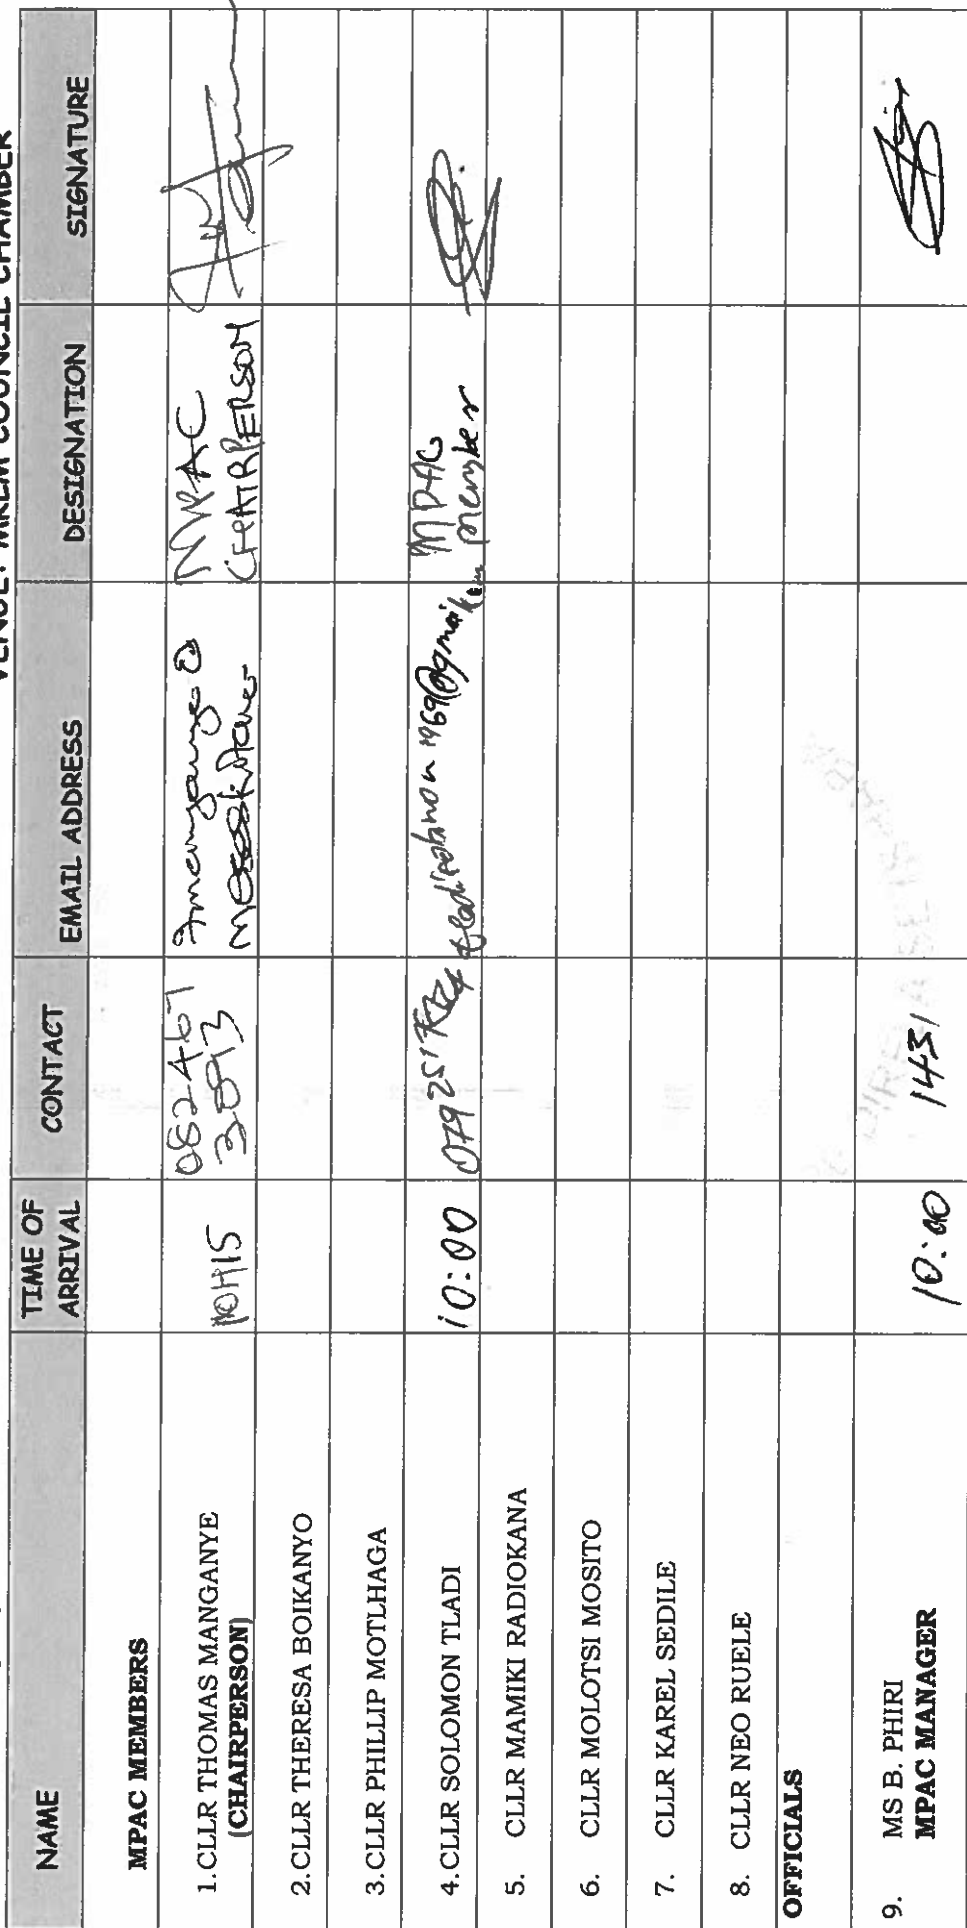 VENUE: MKLM COUNCIL CHAMBER
NAME TIME OF ARRIVAL CONTACT EMAIL ADDRESS DESIGNATION SIGNATURE
MPAC MEMBERS
1.CLLR THOMAS MANGANYE (CHAIRPERSON) 10H15 082467 3893 MPAC CHAIRPERSON
2.CLLR THERESA BOIKANYO
3.CLLR PHILLIP MOTLHAGA
4.CLLR SOLOMON TLADI 10:00 MPAC member
5. CLLR MAMIKI RADIOKANA
6. CLLR MOLOTSI MOSITO
7. CLLR KAREL SEDILE
8. CLLR NEO RUELE
OFFICIALS
9. MS B. PHIRI MPAC MANAGER 10:00 1431